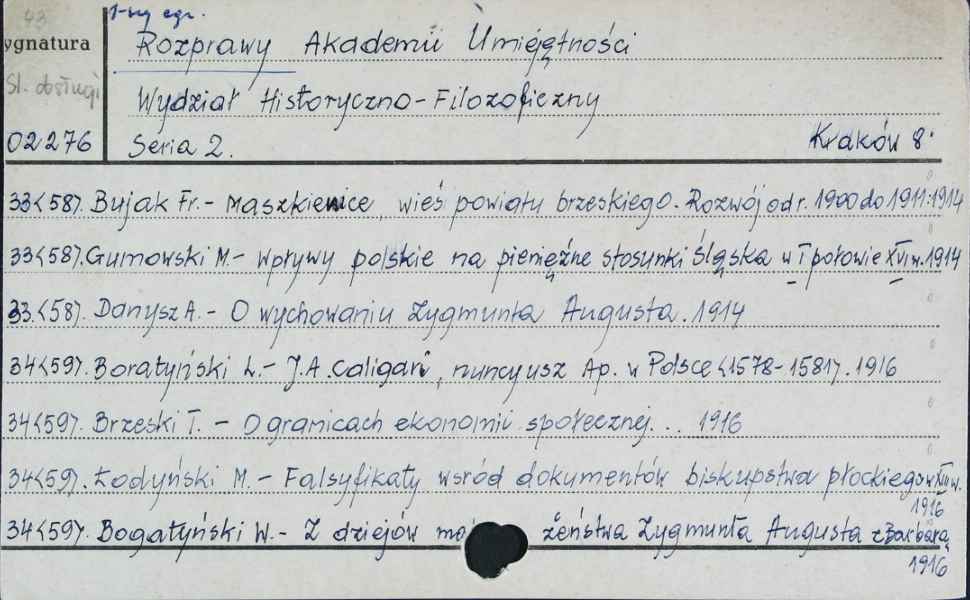 43
1-szy egz.
ygnatura
Rozprawy Akademii Umiejętności
Sl. obsługi
Wydział Historyczno-Filozoficzny
02276
Seria 2.
Kraków 8°
33<58>. Bujak Fr.- Maszkienice, wieś powiatu brzeskiego. Rozwój od r. 1900 do 1911.1914
33<58>. Gumowski M.- Wpływy polskie na pieniężne stosunki Śląska w I połowie XVI w. 1914
33.<58>. Danysz A.- O wychowaniu Zygmunta Augusta. 1914
34<59>. Boratyński L.- J.A. Caligari, nuncyusz Ap. w Polsce <1578-1581>. 1916
34<59>. Brzeski T. - O granicach ekonomii społecznej... 1916
34<59>. Łodyński M.- Falsyfikaty wsród dokumentów biskupstwa płockiego w XIII w.
1916
34<59>. Bogatyński W.- Z dziejów ma żeństwa Zygmunta Augusta z Barbarą
1916